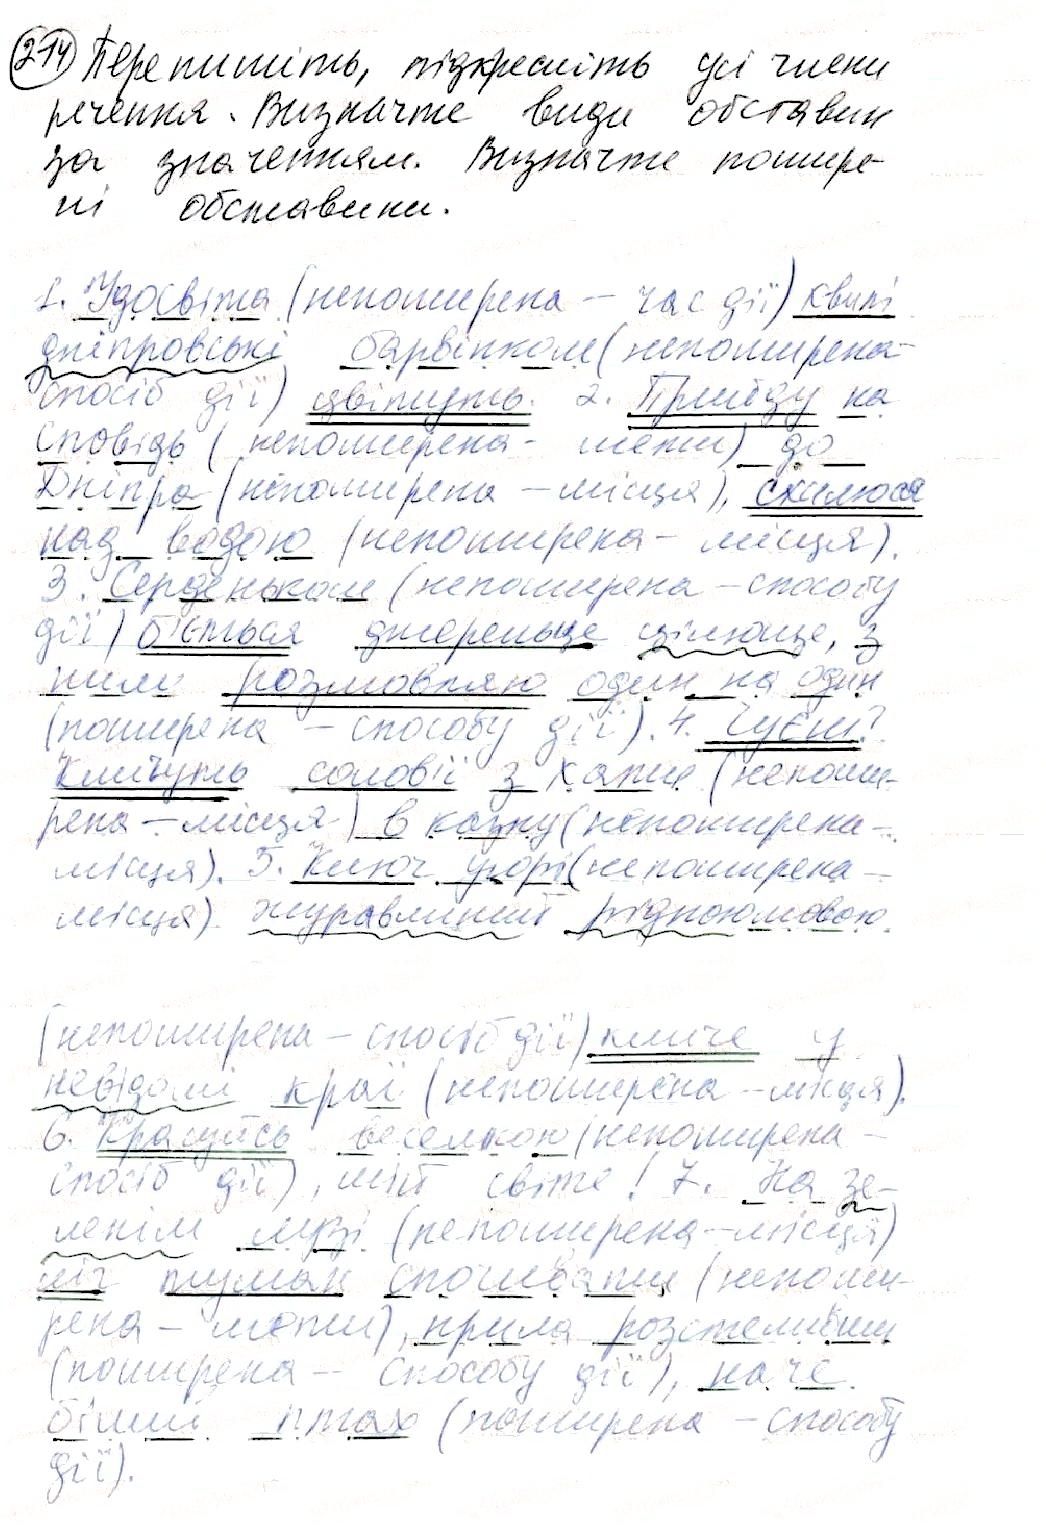 274 Перепишіть, підкресліть усі члени
речення. Визначте види обставин
за значенням. Визначте пошире-
ні обставини.
1. Удосвіта (непоширена – час дії) хвилі
дніпровські барвінком (непоширена-
спосіб дії) цвітуть. 2. Прийду на
сповідь (непоширена- мети) до
Дніпра (непоширена – місця), схилюся
над водою (непоширена – місця).
3. Серденьком (непоширена – способу
дії) б'ється джерельце цілюще, з
ним розмовляю один на один
(поширена – способу дії). 4. Чуєш?
Кличуть солов'ї з хати (непоши-
рена – місця) в казку (непоширена –
місця). 5. Ключ угорі (непоширена –
місця). журавлиний рідною мовою
(непоширена – спосіб дії) кличе у
невідомі краї (непоширена – місця).
6. Красуйсь веселкою (непоширена –
спосіб дії), мій світе! 7. На зе-
ленім лузі (непоширена – місця)
ліг туман спочивати (непоши-
рена – мети), крила розстеливши
(поширена – способу дії), наче
білий птах (поширена – способу
дії).